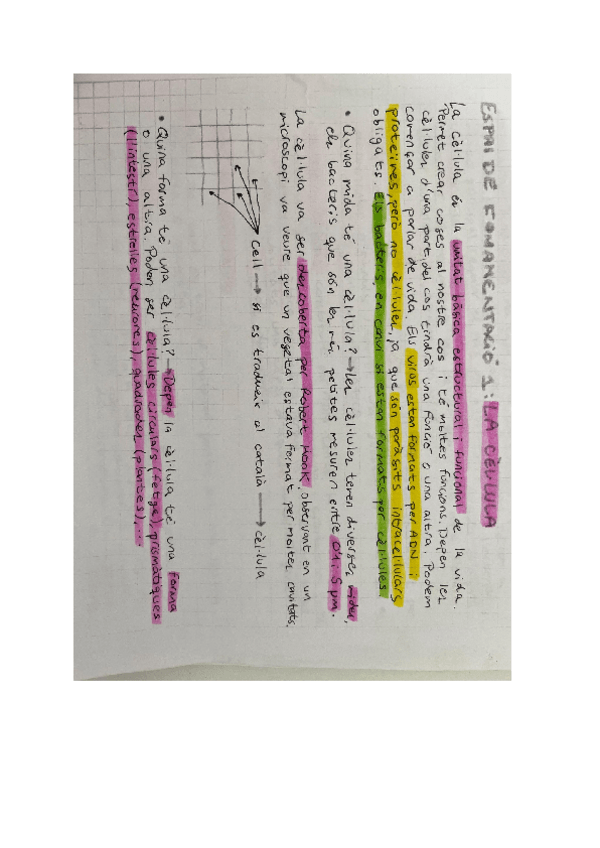 ESPAI DE FONAMENTACIÓ 1: LA CÈL·LULA
La cèl·lula és la unitat bàsica estructural i funcional de la vida.
Permet crear coses al nostre cos i té moltes funcions. Depèn les
cèl·lules d'una part del cos tindrà una funció o una altra. Podem
començar a parlar de vida. Els virus estan formats per ADN i
proteïnes, però no cèl·lules, ja que són paràsits intracel·lulars
obligats. Els bacteris, en canvi si estan formats per cèl·lules
• Quina mida té una cèl·lula? → Les cèl·lules tenen diverses mides,
els bacteris que són les més petites mesuren entre 0'1 i 5 μm.
La cèl·lula va ser descoberta per Robert Hook observant en un
microscopi va veure que un vegetal estava format per moltes cavitats.
cell → si es tradueix al català → cèl·lula
• Quina forma té una cèl·lula? → Depèn la cèl·lula té una forma
o una altra. Poden ser cèl·lules circulars (fetge), prismàtiques
(l'intestí), estrelles (neurones), quadrades (plantes), ...